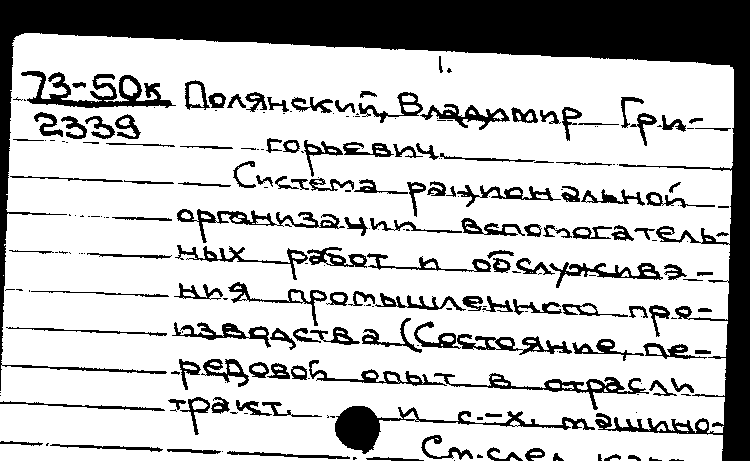 1.
73-50к Полянский, Владимир Гри-
2339
горьевич.
Система рациональной
организации вспомогатель-
ных работ и обслужива-
ния промышленного про-
изводства (Состояние, пе-
редовой опыт в отрасли
тракт. и с.-х. машино-
См. след. карт